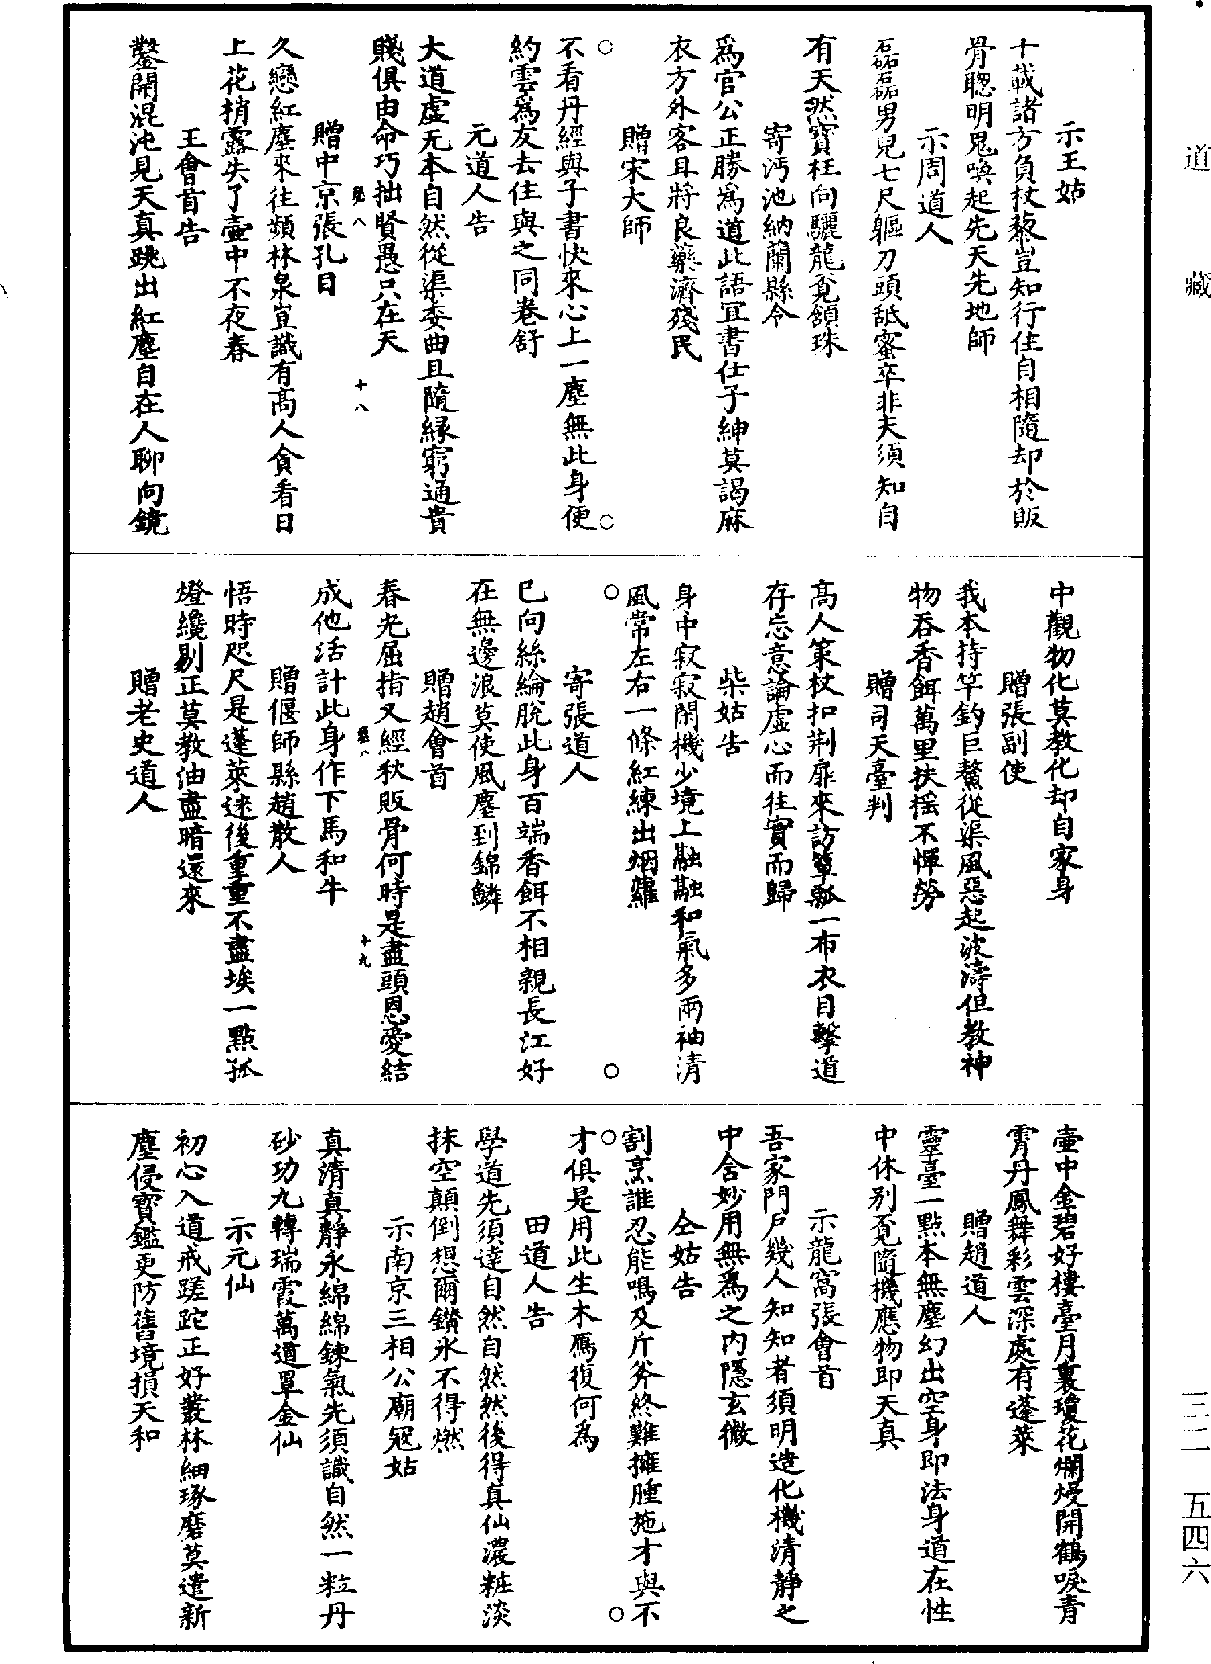 道藏
三二 五四六
示王姑
十載諸方負杖藜豈知行住自相隨却於販
骨聦明鬼喚起先天先地師
示周道人
磊磊男兒七尺軀刀頭舐蜜卒非夫須知自
有天然寳枉向驪龍覔頷珠
寄沔池納蘭縣令
爲官公正勝爲道此語冝書仕子紳莫謁麻
衣方外客且將良藥濟殘民
贈宋大師
不看丹經與子書快來心上一塵無此身便
約雲爲友去住與之同卷舒
元道人告
大道虛无本自然從渠委曲且隨縁窮通貴
賤俱由命巧拙賢愚只在天
十八
贈中京張孔目
久戀紅塵來往頻林泉豈識有髙人貪看日
上花梢露失了壷中不夜春
王會首告
鑿開混沌見天真跳出紅塵自在人聊向鏡
中觀物化莫教化却自家身
贈張副使
我本持竿釣巨鰲從渠風惡起波濤但教神
物吞香餌萬里扶揺不憚勞
贈司天臺判
髙人策杖扣荆扉來訪簞瓢一布衣目擊道
存忘意論虛心而往實而歸
柴姑告
身中寂寂閑機少境上融融和氣多兩袖清
風常左右一條紅練出烟蘿
寄張道人
已向絲綸脫此身百端香餌不相親長江好
在無邊浪莫使風塵到錦鱗
贈趙會首
春光屈指又經秋販骨何時是盡頭恩愛結
十九
成他活計此身作下馬和牛
贈偃師縣趙散人
悟時咫尺是蓬萊迷後重重不盡埃一點孤
燈纔剔正莫教油盡暗還來
贈老史道人
壷中金碧好樓臺月裏瓊花爛熳開鶴唳青
霄丹鳳舞彩雲深處有蓬萊
贈趙道人
靈臺一點本無塵幻出空身即法身道在性
中休别覔隨機應物即天真
示龍窩張會首
吾家門户幾人知知者須明造化機清靜之
中含妙用無爲之内隱玄微
仝姑告
割烹誰忍能鳴及斤斧終難擁腫施才與不
才俱是用此生木鴈復何爲
田道人告
學道先須達自然自然然後得真仙濃粧淡
抹空顛倒想爾鑚氷不得燃
示南京三相公廟冦姑
真清真靜永綿綿鍊氣先須識自然一粒丹
砂功九轉瑞霞萬道罩金仙
示元仙
初心入道戒蹉跎正好叢林細琢磨莫遣新
塵侵寳鑑更防舊境損天和